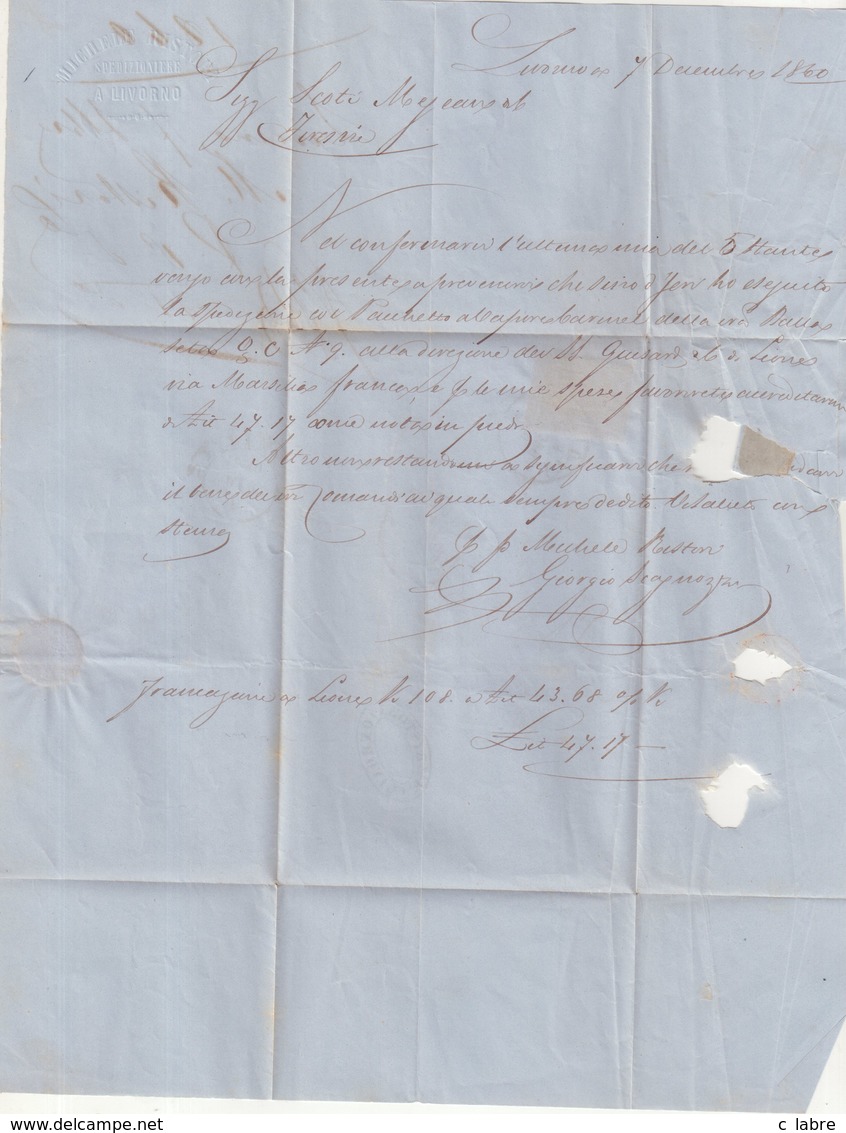 MICHELE RISTORI
SPEDIZIONIERE
A LIVORNO
Livorno 7 Decembre 1860
Sigg Scoti Mejean
Firenze
Nel confermarvi l'ultima mia del 5 stante
vengo con la presente a prevenirvi che sino d'Jeri ho eseguito
la spedizione col Pacchetto a Vapore Carmel della vra Balla
seta N 9. alla direzione dei SS. di Lione
via Marsilia franco, e le mie spese favorirete accreditarmi
47.17 come nota in piedi
Altro non restandomi a significarvi che
il bene dei vri Comandi ai quali sempre dedito Vi saluto con
stima
p p Michele Ristori
Giorgio Scagnozzi
Francazione a Lione K 108. a 43.68 % K
Lit 47.17
www.delcampe.net
c labre